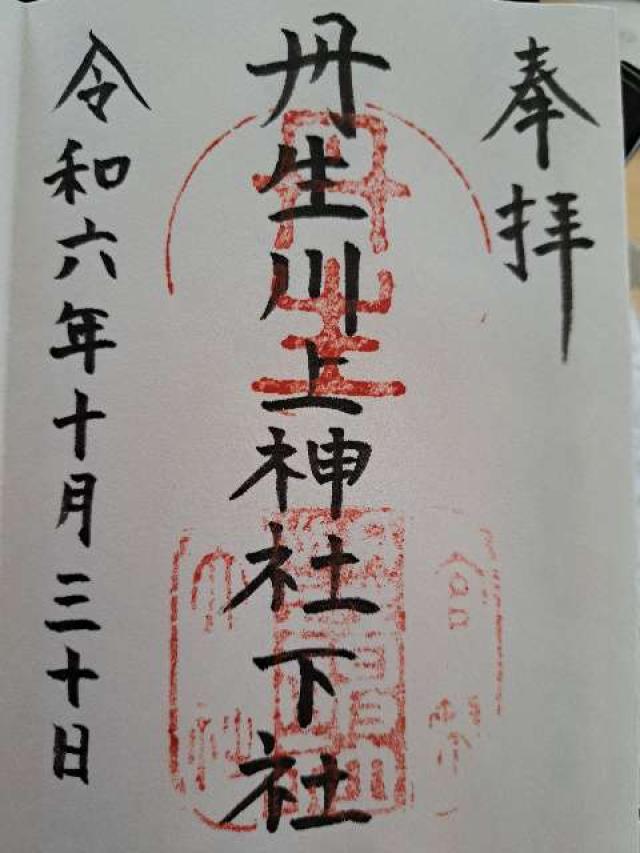 奉拝
丹生川上神社下社
令和六年十月三十日
丹生